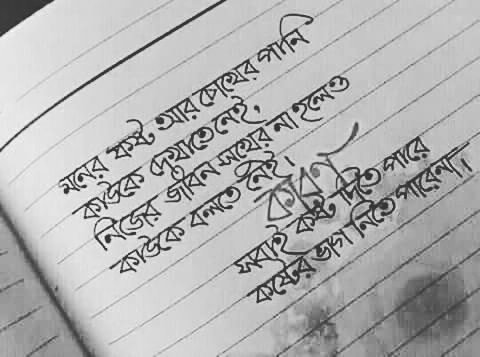 মনের কষ্ট আর চোখের পানি
কাউকে দেখাতে নেই,
নিজের জীবন সুখের না হলেও
কাউকে বলতে নেই।
কারণ
সবাই কষ্ট দিতে পারে
কষ্টের ভাগ নিতে পারেনা।